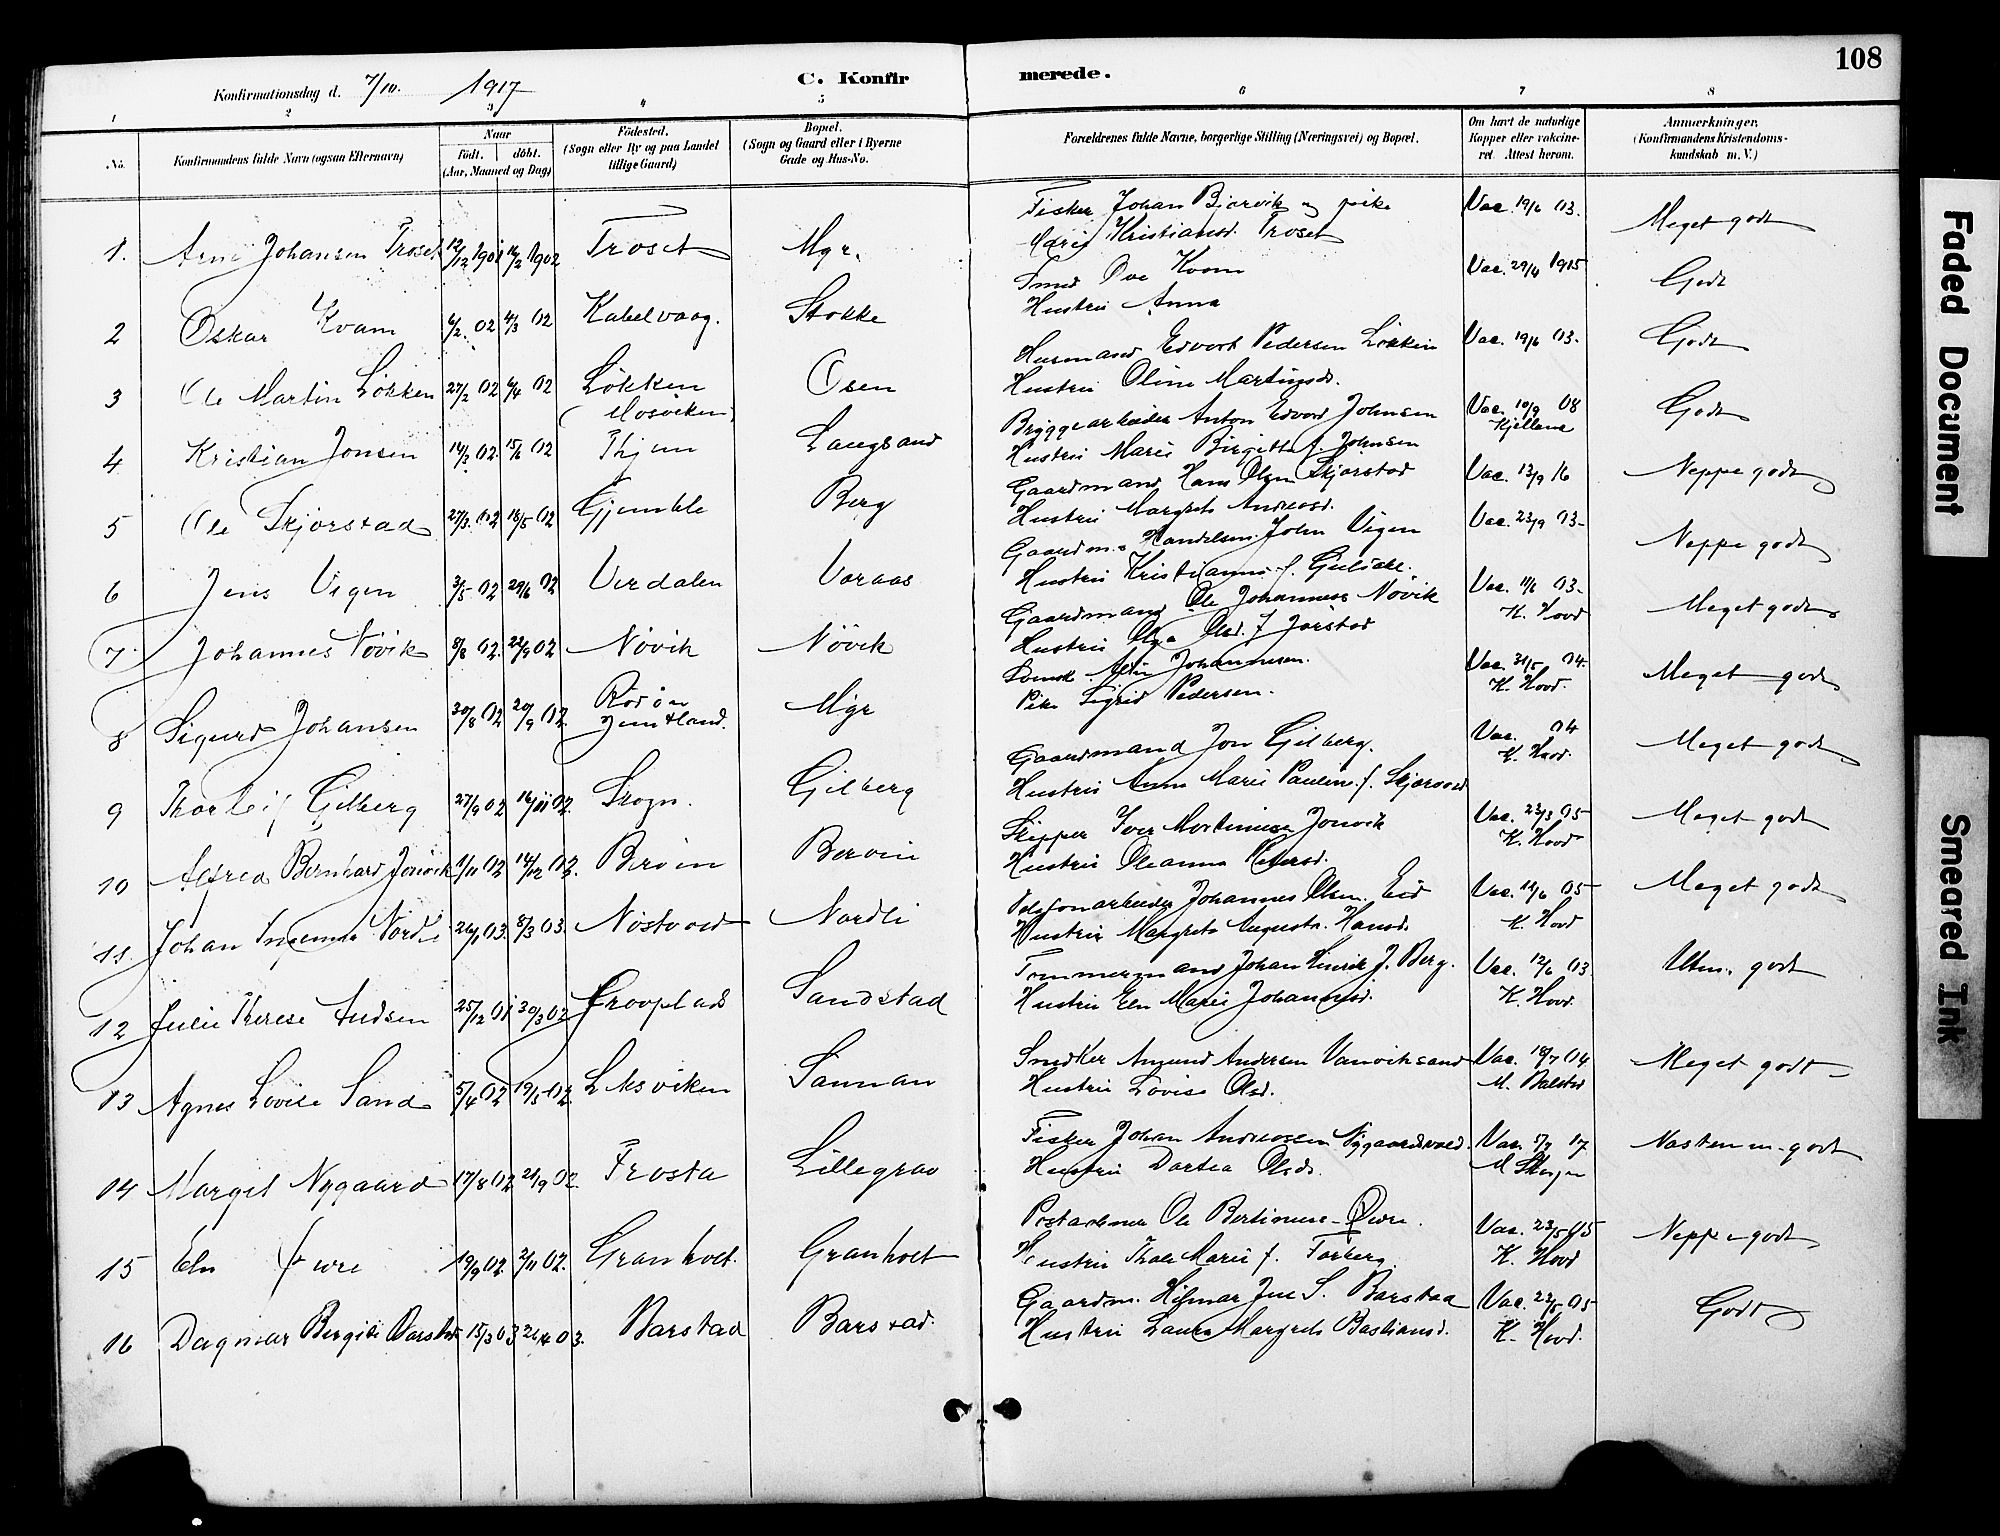 108
Konfirmationsdag d. 7/10. 1917
C. Konfirmerede.
1 2 3 4 5 6 7 8
No.
Konfirmandens fulde Navn (ogsaa Efternavn)
Naar
født. døbt.
(Aar, Maaned og Dag)
Fødested.
(Sogn eller By og paa Landet
tillige Gaard)
Bopæl.
(Sogn og Gaard eller i Byerne
Gade og Hus-No.
Forældrenes fulde Navne, borgerlige Stilling (Næringsvei) og Bopæl.
Om havt de naturlige
Kopper eller vakcine-
ret. Attest herom.
Anmærkninger.
(Konfirmandens Kristendoms-
kundskab m. V.)
Fisker Johan Bjørvik og pike Vac. 19/6 03.
1. Arne Johansen Troset 12/12 1901 16/2 1902 Troset Mgr. Marie Kristiansd. Troset Meget godt
Smed Ove Kvam Vac. 29/4 1915
2 Oskar Kvam 6/2 02 4/3 02 Kabelvaag. Stokke Hustru Anna Godt
Husmand Edvart Pedersen Løkken Vac. 19/6 03.
3 Ole Martin Løkken 27/2 02 6/4 02 Løkken (Mosviken) Osen Hustru Oline Martinsd. Godt
Bryggearbeider Anton Edvard Johnsen Vac. 10/9 08
4 Kristian Jonsen 14/3 02. 15/6 02 Langsand Hustru Marie Birgitte f. Johnsen Godt
Gaardmand Hans Olsen Skjørstad Vac. 13/9 16
5 Ole Skjørstad 27/3. 02 18/5 02 Gjemble Berg Hustru Margrete Andreasd. Neppe godt
Gaardm. Handelsm. John Vigen Vac. 23/9 03-
6 Jens Vigen 3/5 02 29/6 02 Verdalen Voraas Hustru Kristianne f. Neppe godt
Gaardmand Ole Johannesen Nøvik Vac. 11/6 03.
K. Hood
7. Johannes Nøvik 8/8 02. 22/9 02 Nøvik Nøvik Hustru Olga Olsd. f Jørstad Meget godt
Svensk Johannesen. Vac. 31/5 04.
K. Hood.
8 Sigurd Johansen 30/8 02 20/9 02. Rødøn Jemtland. Mgr Pike Sigrid Pedersen. Meget godt
Gaardmand Jon Gilberg. Vac. 04
K. Hood.
9 Thorleif Gilberg 27/9 02 16/11 02. Skogn. Gilberg Hustru Anne Marie Paulin f. Skjervold Meget godt
Skipper Iver Mortinusen Jonvik Vac. 23/3 05
K. Hood
10 Alfred Bernhard Jonvik 1/11 02 14/12 02. Berøen Berøen Hustru Oleanna Petersd. Meget godt
Telefonarbeider Johannes Olsen Eid Vac. 14/6 05
K. Hood
11 Johan Ingemar Nordli 26/1 03. 8/3 03. Nøstvold Nordli Hustru Margrete Augusta Hansd. Meget godt
Tommermand Johan Henrik J. Berg. Vac. 12/6 03
K. Hood.
12 Julie Therese Audsen 25/12 01 30/3 02 Sandstad Hustru Elen Marie Johannesd. Utm. godt
Snedker Amund Andersen Vanviksand Vac. 18/7 04
M. Balstad
13 Agnes Lovise Sand 5/4 02 19/5 02. Leksviken Sannan Hustru Lovise Olsd. Meget godt
Fisker Johan Andreassen Nygaardsvold. Vac. 5/7 17
M
14 Marget Nygaard 17/8 02 21/9 02. Frosta Lillegrav Hustru Dortea Olsd. Næsten m. godt
Postaabner Ole Bertinusen Øvre. Vac. 23/5 05
K. Hood
15 Eln Øvre 19/9 02. 2/11 02. Granholt. Granholt Hustru Thale Marie f. Forberg. Neppe godt
Gaardm. Hilmar Jul. S. Barstad Vac. 23/5 05
K. Hood.
16 Dagmar Bergite Barstad 15/3 03 26/4 03. Barstad Barstad. Hustru Laura Margrete Bastiansd. Godt
Faded Document
Smeared Ink